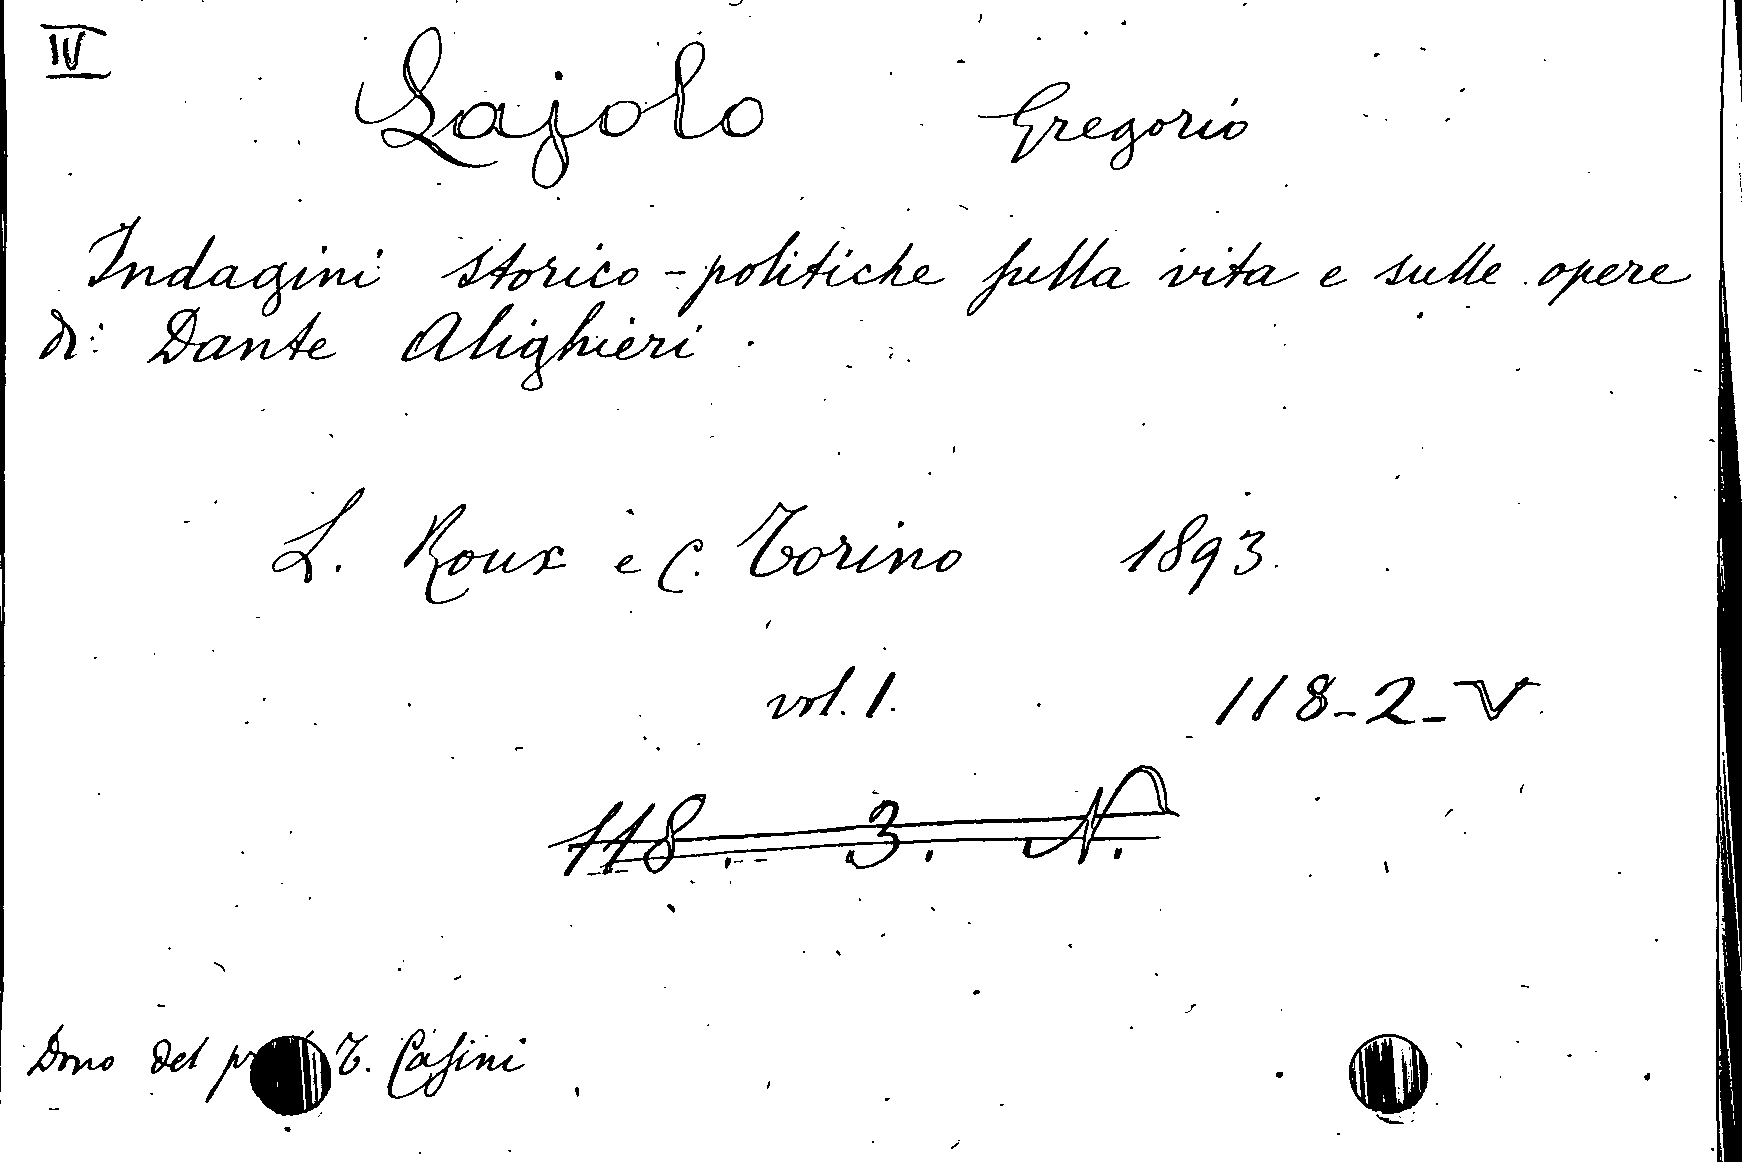 IV
Lajolo Gregorio
Indagini storico-politiche sulla vita e sulle opere
di Dante Alighieri
L. Roux e C. Torino 1893.
vol. 1. 118-2-V
118. 3. N.
Dono del T. Casini